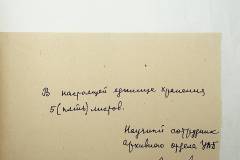 В настоящей единице хранения
5 (пять) листов.
Научный сотрудник
архивного отдела